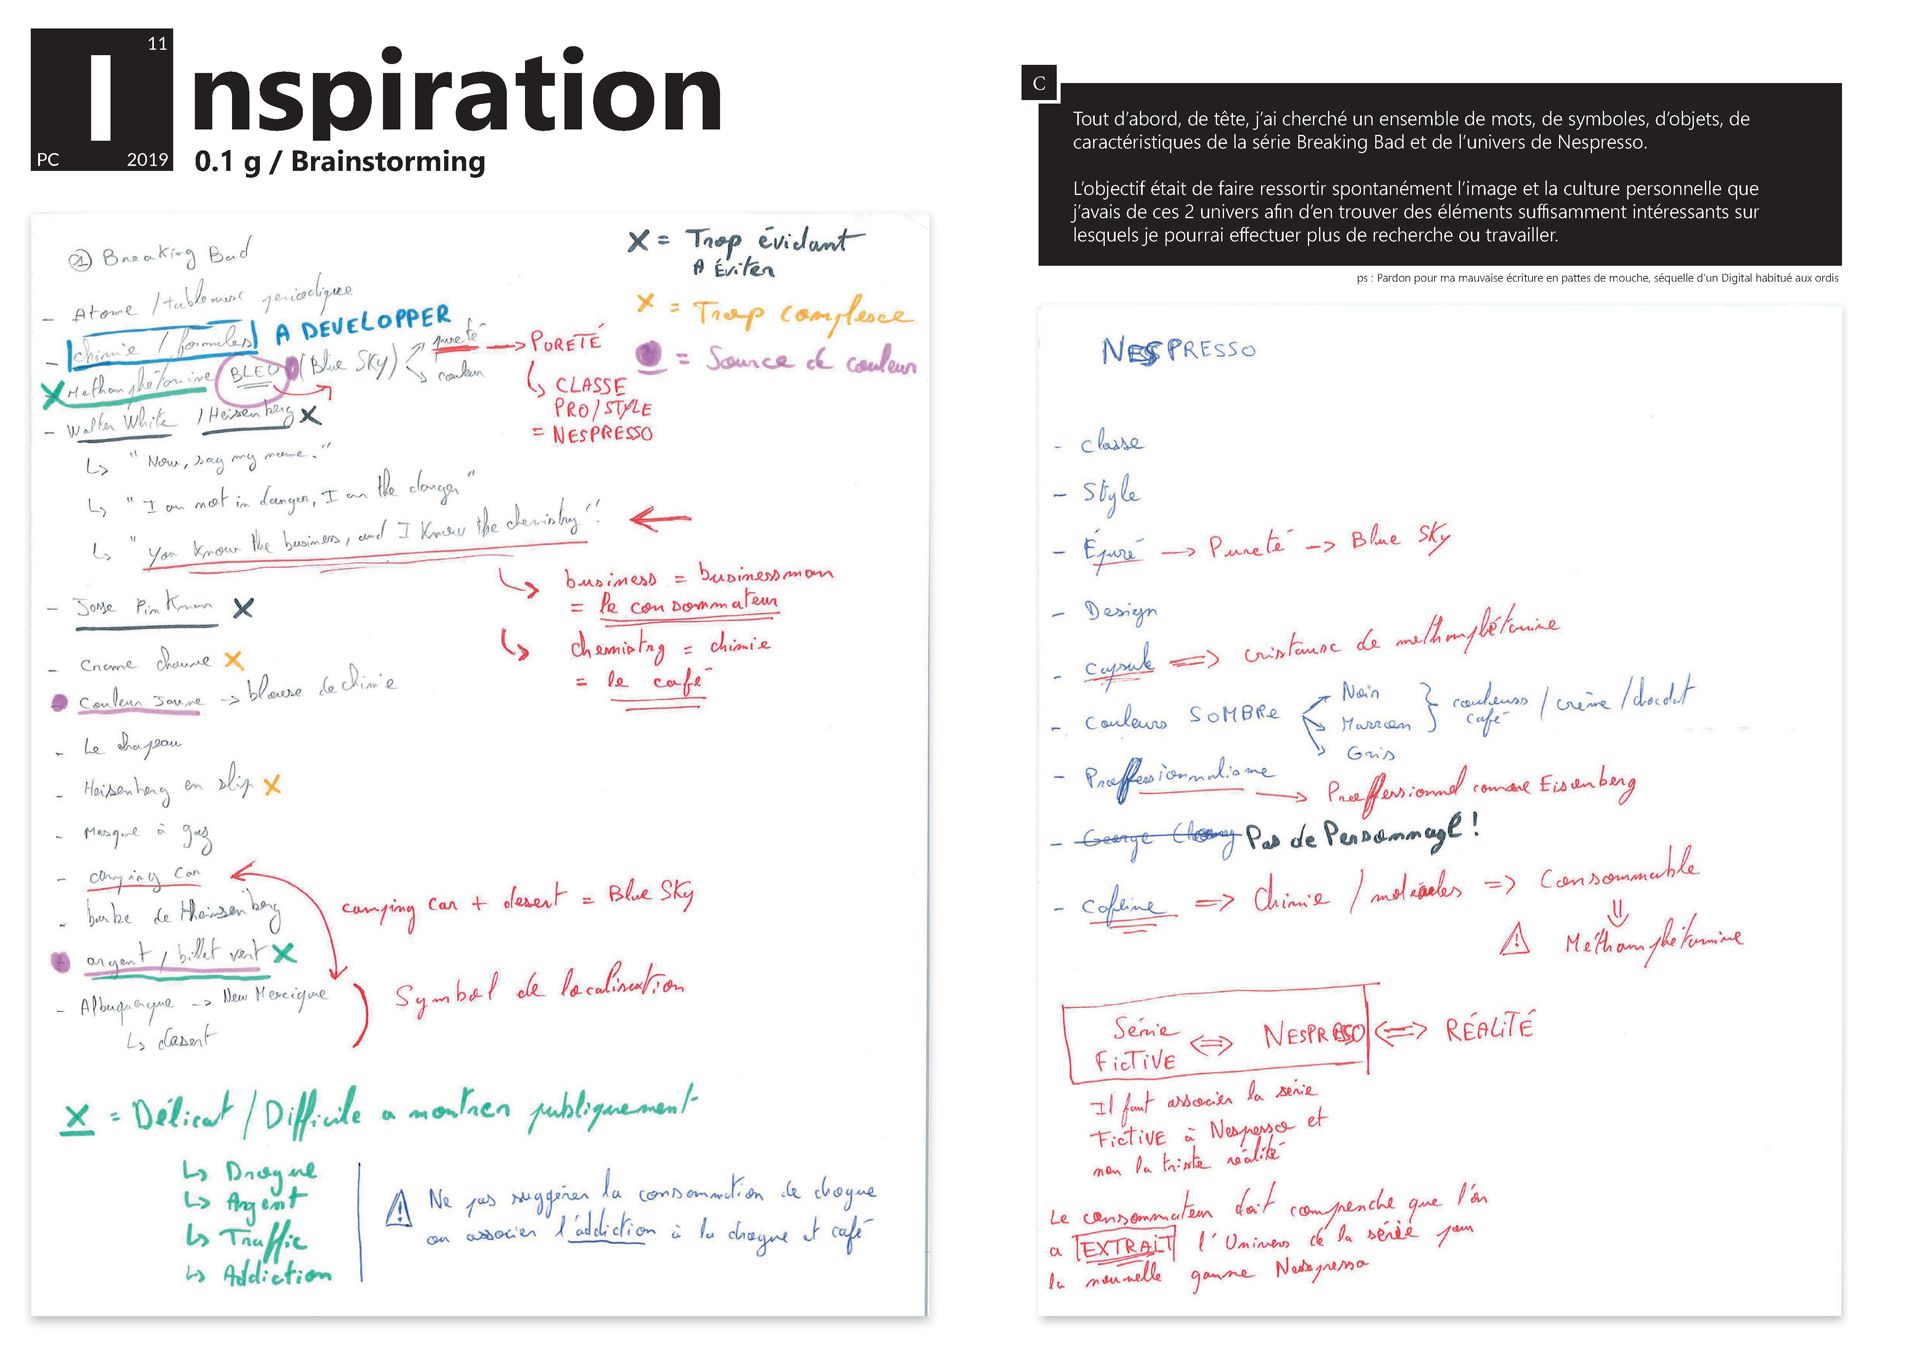 11
I
PC 2019
nspiration
0.1 g / Brainstorming
C
Tout d'abord, de tête, j'ai cherché un ensemble de mots, de symboles, d'objets, de
caractéristiques de la série Breaking Bad et de l'univers de Nespresso.
L'objectif était de faire ressortir spontanément l'image et la culture personnelle que
j'avais de ces 2 univers afin d'en trouver des éléments suffisamment intéressants sur
lesquels je pourrai effectuer plus de recherche ou travailler.
ps : Pardon pour ma mauvaise écriture en pattes de mouche, séquelle d'un Digital habitué aux ordis
X = Trop évidant
A Éviter
X = Trop complexe
= Source de couleur
1 Breaking Bad
- Atome / tableaux periodique
- chimie / formules A DEVELOPPER
X Methamphétamine BLEU (Blue Sky) pureté → PURETÉ
couleur
↳ CLASSE
PRO/STYLE
= NESPRESSO
- Walter White / Heisenberg X
↳ "Now, say my name."
↳ "I am not in danger, I am the danger"
↳ "You know the business, and I know the chemistry". ←
↳ business = businessman
= le consommateur
↳ chemistry = chimie
= le café
- Jesse Pinkman X
- Crane chauve X
Couleur Jaune → blouse de chimie
- Le chapeau
- Heisenberg en slip X
- Masque à gaz
- camping car
camping car + desert = Blue Sky
- barbe de Heissenberg
- argent / billet vert X
- Albuquerque → New Mexique
↳ desert
Symbol de localisation
X = Délicat / Difficile a montrer publiquement
↳ Drogue
↳ Argent
↳ Traffic
↳ Addiction
⚠ Ne pas suggérer la consommation de drogue
ou associer l'addiction à la drogue et café
NESPRESSO
- classe
- Style
- Épuré → Pureté → Blue Sky
- Design
- capsule ⇒ cristaux de methamphétamine
- couleurs SOMBRE Noir
Marron
Gris
couleurs / crème / chocolat
café
- Proffessionnalisme → Proffessionnel comme Eisenberg
- George Clooney Pas de Personnage !
- caféine ⇒ Chimie / molécules ⇒ Consommable
⇓
⚠ Méthamphétamine
Série
FICTIVE ⇔ NESPRESSO ⇔ RÉALITÉ
Il faut associer la série
FICTIVE à Nespresso et
non la triste réalité
Le consommateur doit comprendre que l'on
a EXTRAIT l'Univers de la série pour
la nouvelle gamme Nespresso